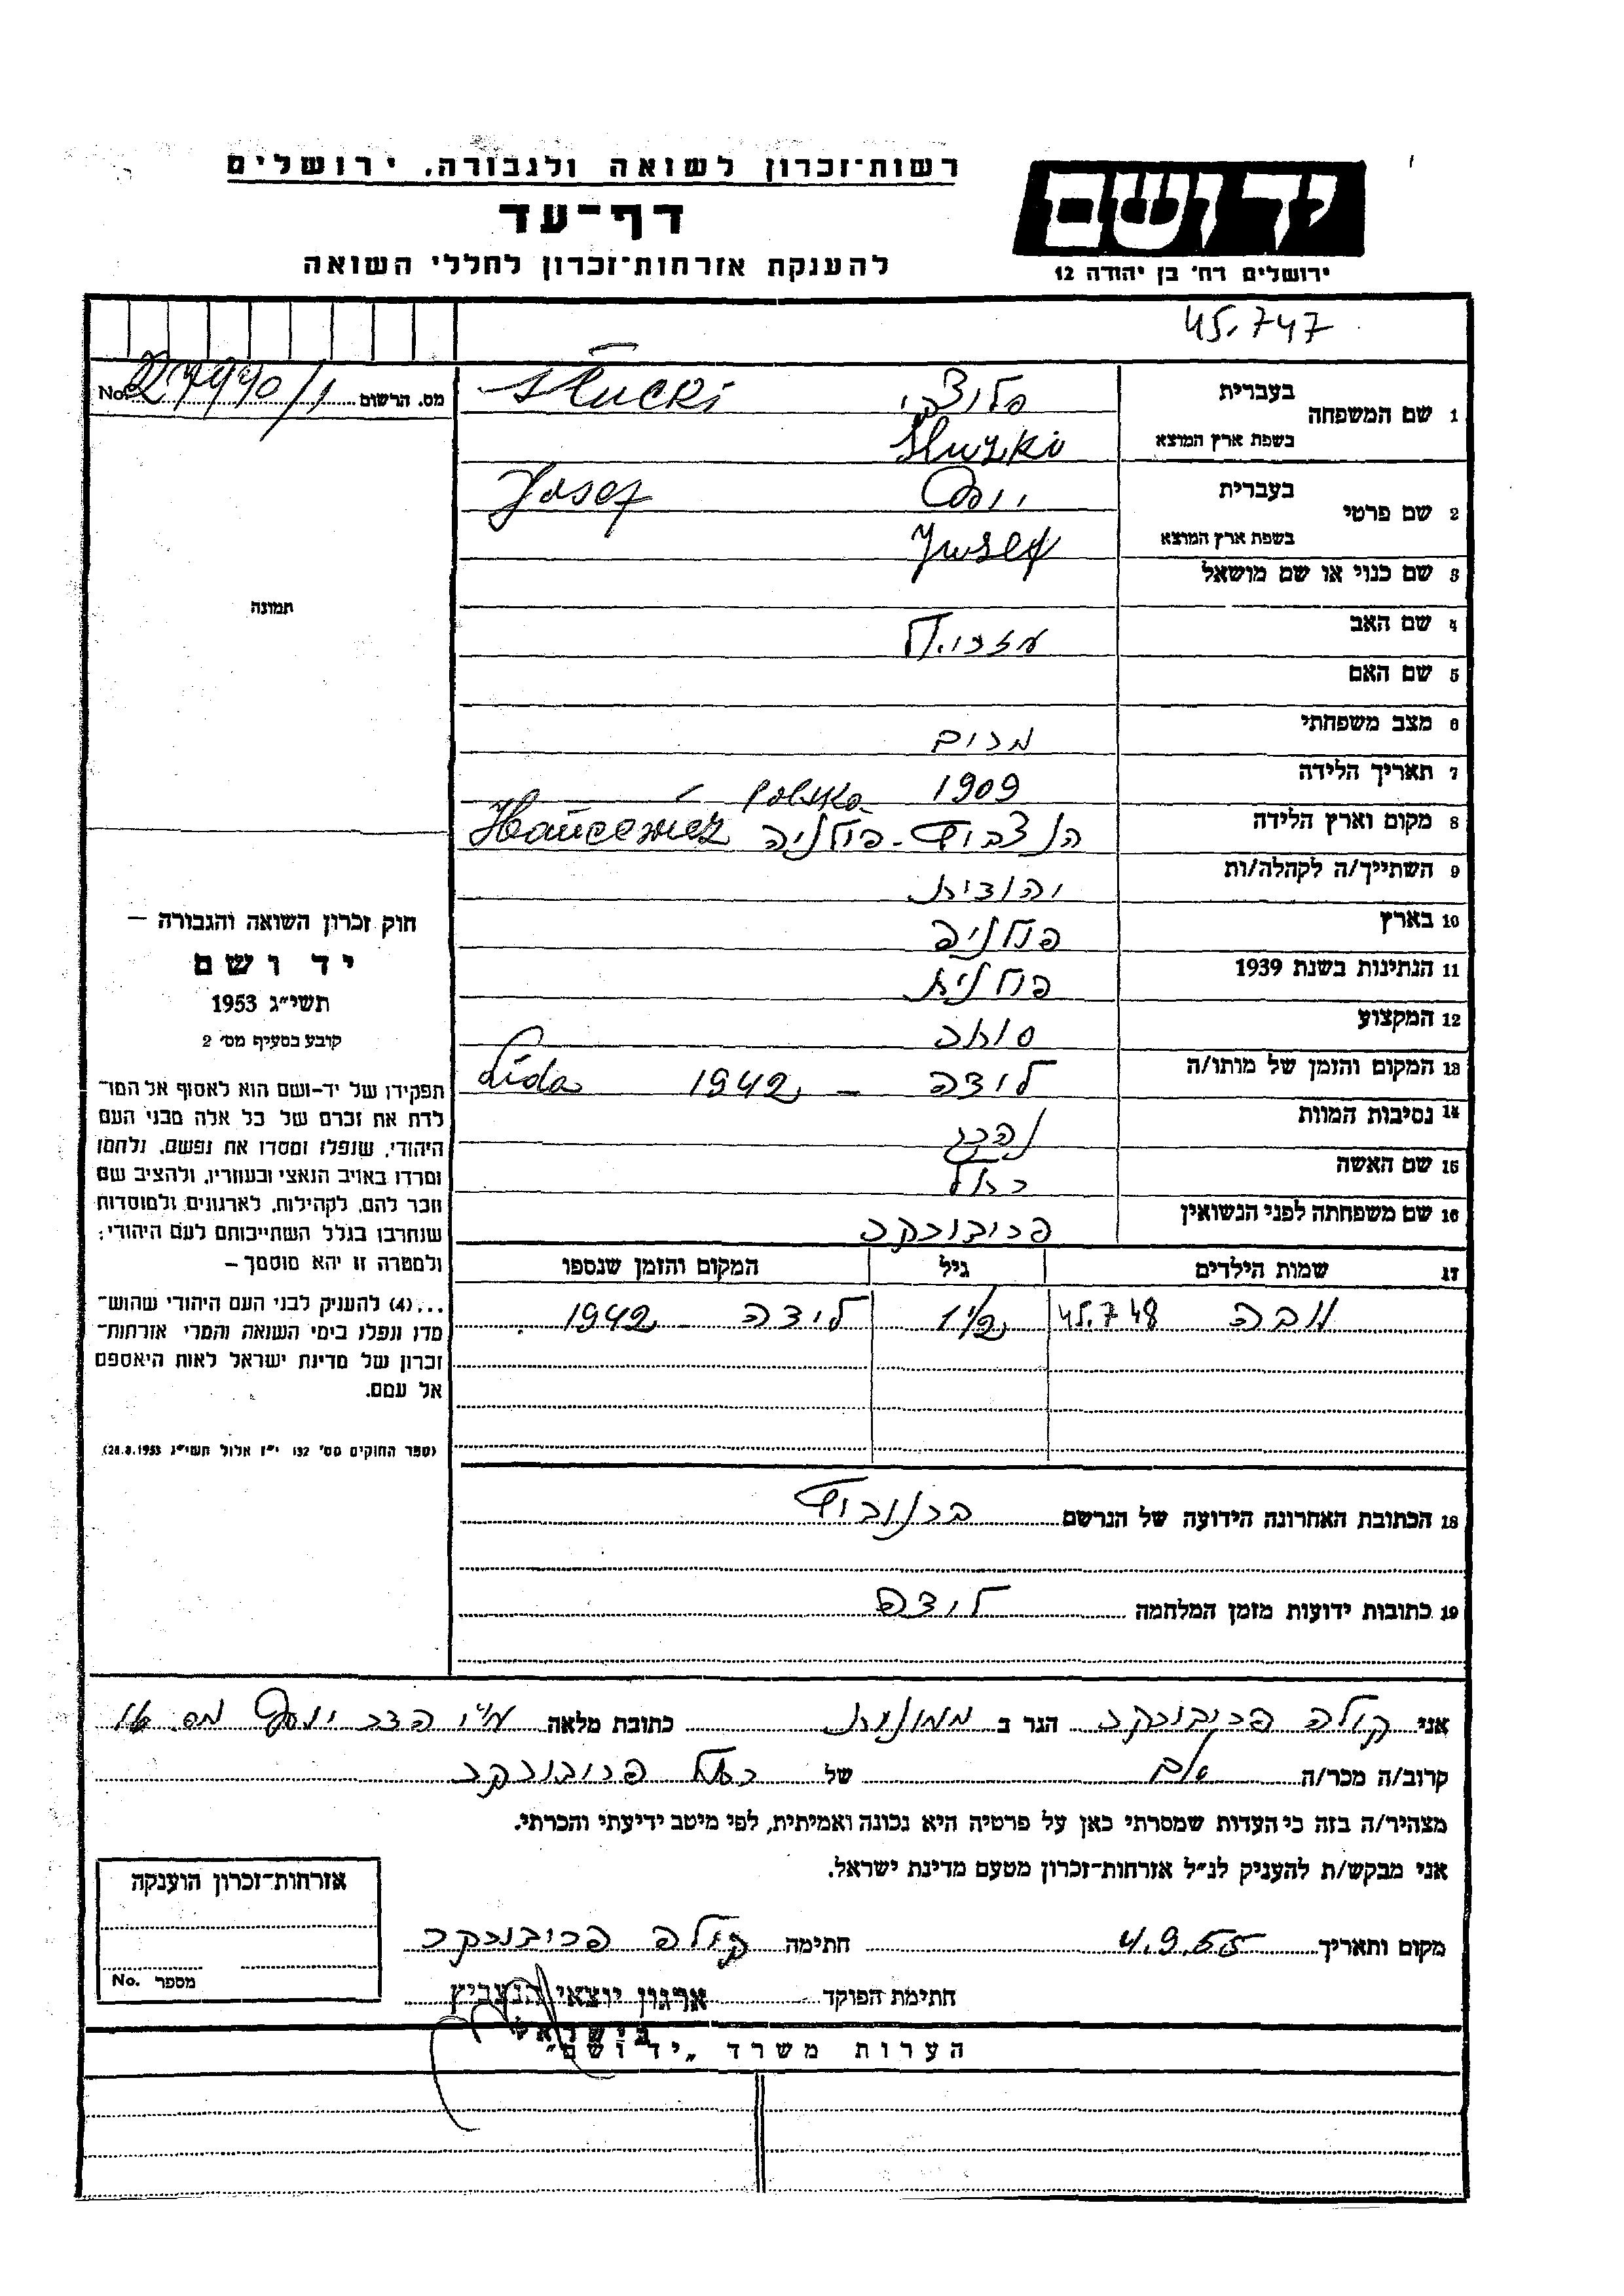 רשות־זכרון לשואה ולגבורה, ירושלים
דף־עד
להענקת אזרחות־זכרון לחללי השואה
יד ושם
ירושלים רח' בן יהודה 12
45.747
מס. הרשום No. 27990/1
1 שם המשפחה בעברית סלוצקי Słucki
בשפת ארץ המוצא Sluzki
2 שם פרטי בעברית יוסף Josef
בשפת ארץ המוצא Jusef
3 שם כנוי או שם מושאל
4 שם האב
5 שם האם
6 מצב משפחתי
7 תאריך הלידה 1909
8 מקום וארץ הלידה הנצביץ - פולניה Hańcewicz
9 השתייך/ה לקהלה/ות יהודית
10 בארץ פולניה
11 הנתינות בשנת 1939 פולנית
12 המקצוע
13 המקום והזמן של מותו/ה לידה - 1942 Lida
14 נסיבות המוות נהרג
15 שם האשה רחל
16 שם משפחתה לפני הנשואין
17 שמות הילדים גיל המקום והזמן שנספו
45.748 לידה - 1942
18 הכתובת האחרונה הידועה של הנרשם
19 כתובות ידועות מזמן המלחמה לידה
תמונה
חוק זכרון השואה והגבורה —
יד ושם
תשי״ג 1953
קובע בסעיף מס' 2
תפקידו של יד-ושם הוא לאסוף אל המו־
לדת את זכרם של כל אלה מבני העם
היהודי, שנפלו ומסרו את נפשם, נלחמו
ומרדו באויב הנאצי ובעוזריו, ולהציב שם
וזכר להם, לקהילות, לארגונים ולמוסדות
שנחרבו בגלל השתייכותם לעם היהודי;
ולמטרה זו יהא מוסמך —
...(4) להעניק לבני העם היהודי שהוש־
מדו ונפלו בימי השואה והמרי אזרחות־
זכרון של מדינת ישראל לאות היאספם
אל עמם.
(ספר החוקים מס' 132 י״ז אלול תשי״ג 28.8.1953)
אני הגר ב כתובת מלאה
קרוב/ה מכר/ה של רחל
מצהיר/ה בזה כי העדות שמסרתי כאן על פרטיה היא נכונה ואמיתית, לפי מיטב ידיעתי והכרתי.
אני מבקש/ת להעניק לנ״ל אזרחות־זכרון מטעם מדינת ישראל.
מקום ותאריך 4.9.55 חתימה
חתימת הפוקד ארגון יוצאי הנצביץ
בישראל
אזרחות־זכרון הוענקה
מספר No.
הערות משרד „יד ושם״